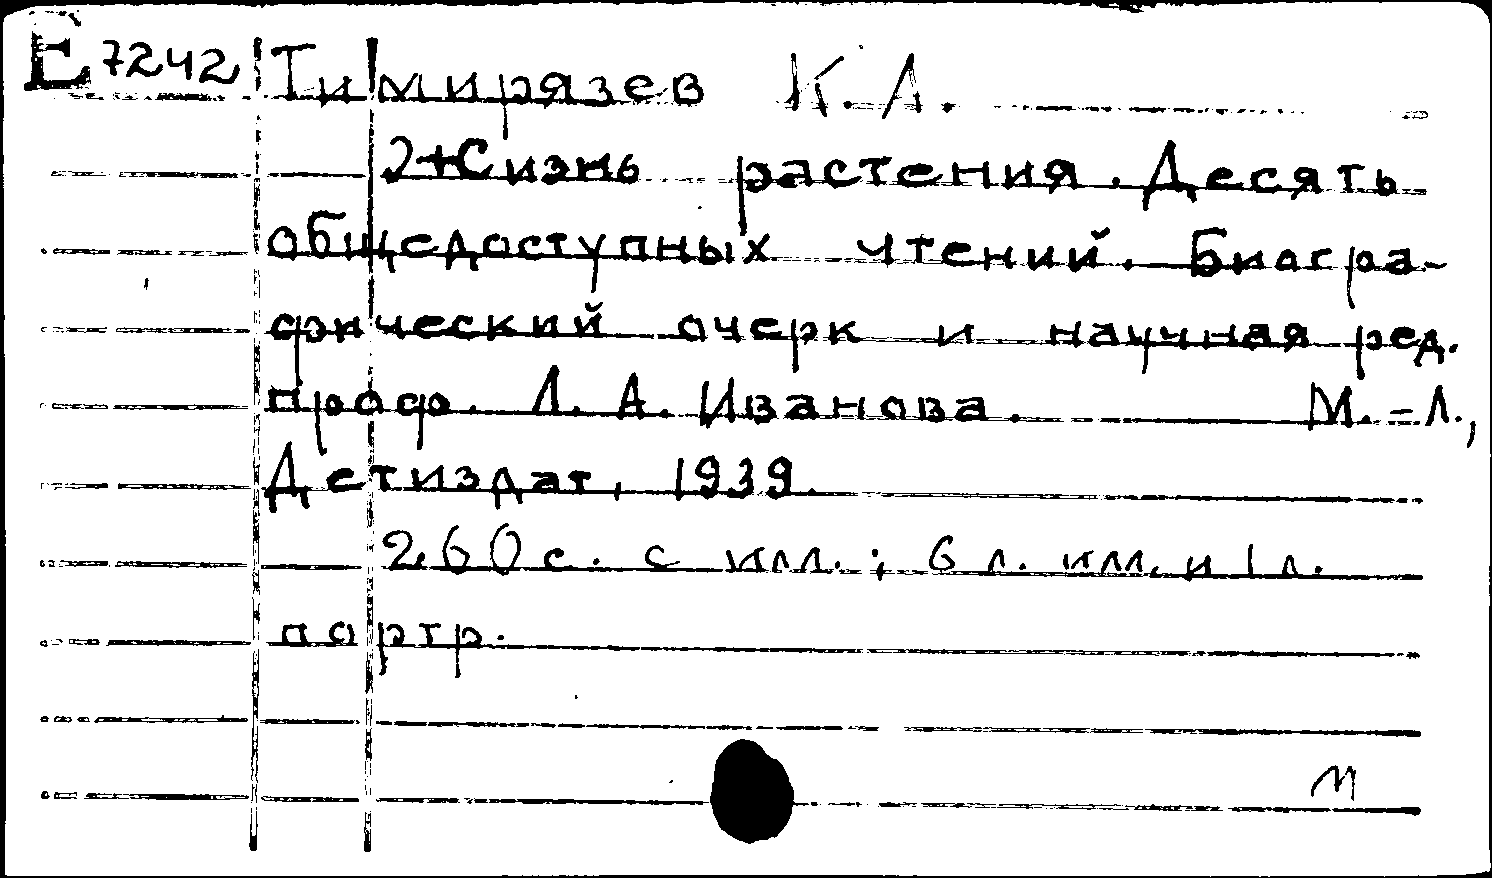 Е 7242 Тимирязев К. А.
Жизнь растения. Десять
общедоступных чтений. Биогра-
фический очерк и научная ред.
проф. Л. А. Иванова. М.-Л.,
Детиздат, 1939.
260 с. с илл.; 6 л. илл. и 1 л.
портр.
М